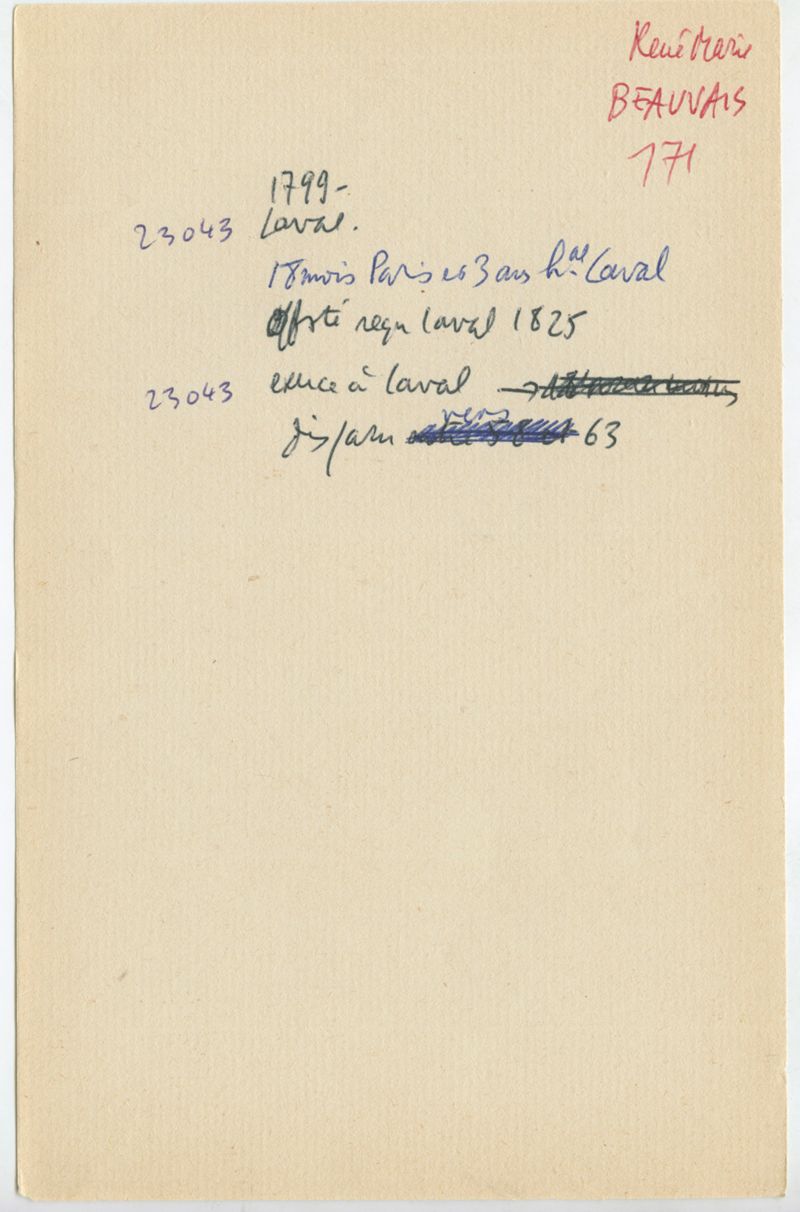 René Marie
BEAUVAIS
171
1799-
23043 Laval.
18 mois Paris et 3 ans hal Laval
reçu Laval 1825
23043 exerce à Laval
disparu vers 63